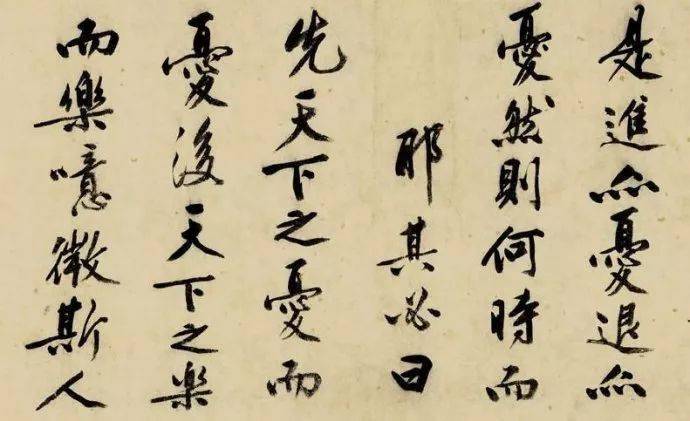 是進亦憂退亦
憂然則何時而
耶其必曰
先天下之憂而
憂後天下之樂
而樂噫微斯人